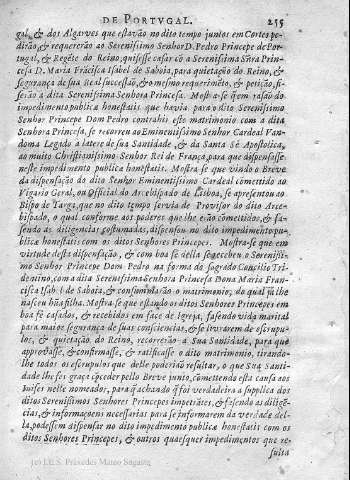 DE PORTVGAL. 215
gal, & dos Algarves que estavão no dito tempo juntos em Cortes pe-
dirão, & requererão ao Serenissimo Senhor D. Pedro Principe de Por-
tugal, & Regẽte do Reino, quisesse casar cõ a Serenissima Sñra Prin-
cesa D. Maria Frãcisca Isabel de Saboia, para quietação do Reino, &
segurança de sua Real successão, & o mesmo requerimẽto, & petição, fi-
serão à dita Serenissima Senhora Princesa. Mostra-se q̃ em rasão do
impedimento publica honestatis que havia para o dito Serenissimo
Senhor Principe Dom Pedro contrahir este matrimonio com a dita
Senhora Princesa, se recorreu ao Eminentissimo Senhor Cardeal Van-
doma Legado à latere de sua Santidade, & da Santa Sè Apostolica,
ao muito Christianissimo Senhor Rei de França, para que dispensasse
neste impedimento publica honestatis. Mostra-se que vindo o Breve
da dispensação do dito Senhor Eminentissimo Cardeal cõmettido ao
Vigario Geral, ou Official do Arcebispado de Lisboa, se apresentou ao
Bispo de Targa, que no dito tempo servia de Provisor do dito Arce-
bispado, o qual conforme aos poderes que lhe erão cõmettidos, & fa-
sendo as diligencias costumadas, dispensou no dito impedimento pu-
blicæ honestatis com os ditos Senhores Principes. Mostra-se que em
virtude desta dispensação, & com boa fè della se receberão o Serenissi-
mo Senhor Principe Dom Pedro na forma do sagrado Concilio Tri-
dentino, com a dita Serenissima Senhora Princesa Dona Maria Fran-
cisca Isabel de Saboia, & consummarão o matrimonio, do qual já lhe
nasceu hũa filha. Mostra-se que estando os ditos Senhores Principes em
boa fè casados, & recebidos em face de Igreja, fasendo vida marital
para maior segurança de suas consciencias, & se livrarem de escrupu-
los, & quietação do Reino, recorrerão a Sua Santidade, para que
approvasse, & confirmasse, & ratificasse o dito matrimonio, tirando-
lhe todos os escrupulos que delle poderião resultar, o que Sua Santi-
dade lhe fes graça cõceder pello Breve junto, cõmettendo esta causa aos
Juises nelle nomeados, para q̃ achando q̃ foi verdadeira a supplica dos
ditos Serenissimos Senhores Principes impetrãtes, & fasendo as diligẽ-
cias, & informaçoens necessarias para se informarem da verdade del-
la, podessem dispensar no dito impedimento publicæ honestatis com os
ditos Senhores Principes, & outros quaesquer impedimentos que re-
sulta
(c) I.E.S. Práxedes Mateo Sagasta